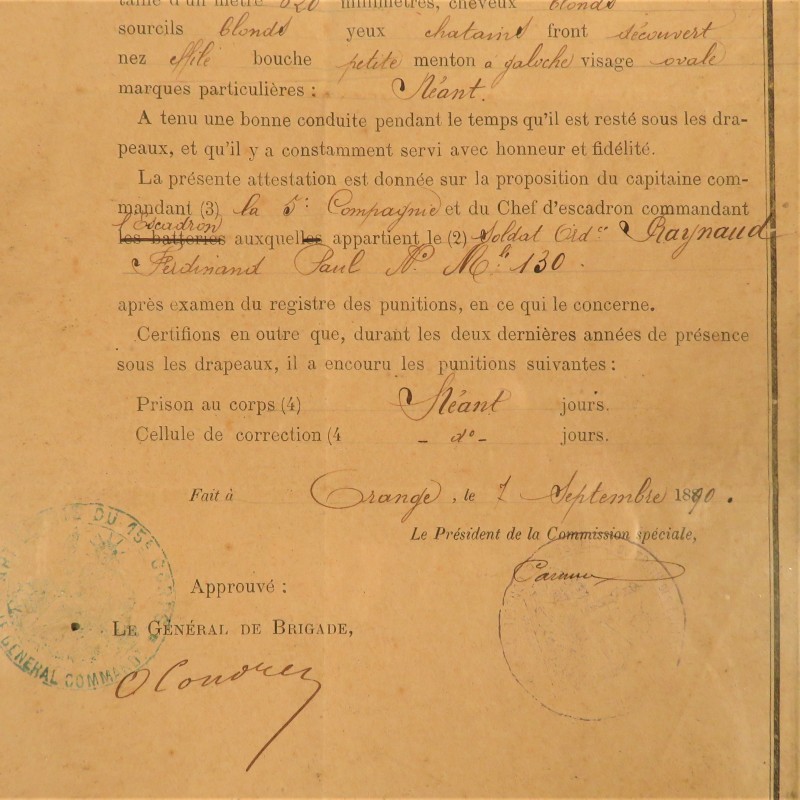 taille d'un mètre 620 millimètres, cheveux blonds
sourcils blonds yeux chatains front découvert
nez effilé bouche petite menton à galoche visage ovale
marques particulières : Néant.
A tenu une bonne conduite pendant le temps qu'il est resté sous les dra-
peaux, et qu'il y a constamment servi avec honneur et fidélité.
La présente attestation est donnée sur la proposition du capitaine com-
mandant (3) la 5e Compagnie et du Chef d'escadron commandant
l'Escadron
les batteries auxquelles appartient le (2) Soldat Ord.re Raynaud
Ferdinand Paul N.o M.le 130.
après examen du registre des punitions, en ce qui le concerne.
Certifions en outre que, durant les deux dernières années de présence
sous les drapeaux, il a encouru les punitions suivantes :
Prison au corps (4) Néant jours.
Cellule de correction (4 - do - jours.
Fait à Orange, le 7 Septembre 1890.
Le Président de la Commission spéciale,
Approuvé :
LE GÉNÉRAL DE BRIGADE,
DU 15E CORPS
GÉNÉRAL COMM